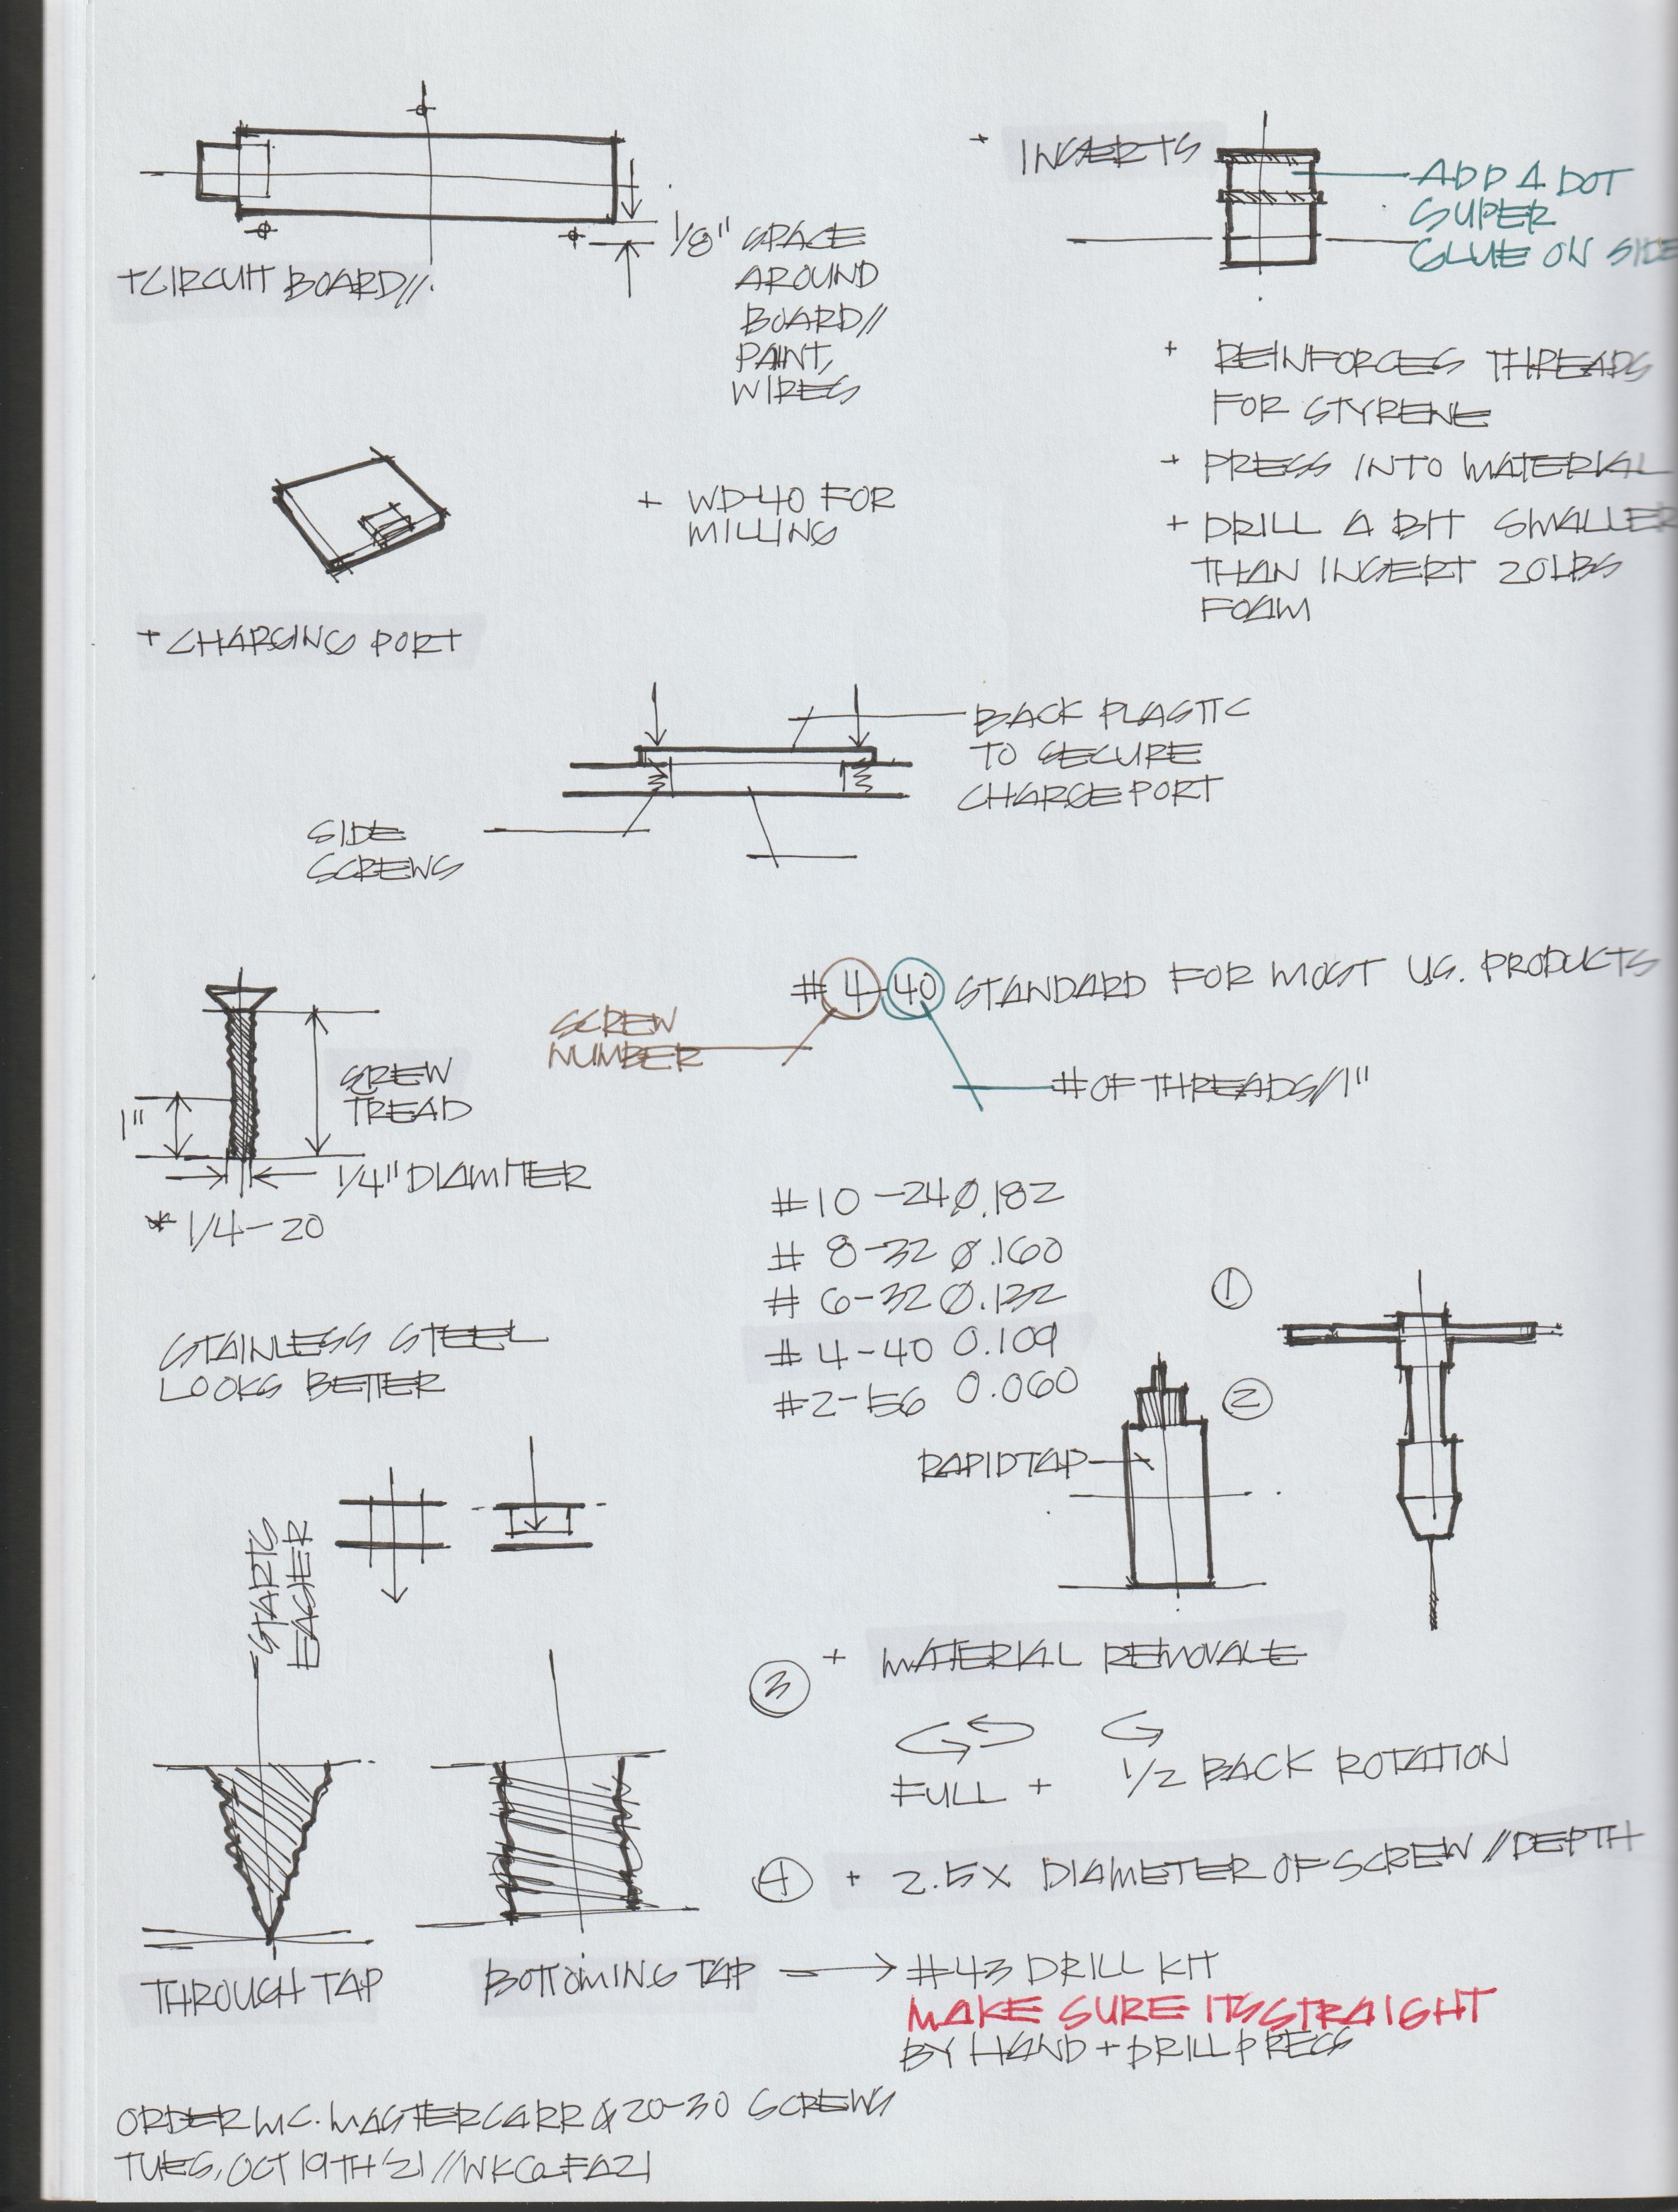 + CIRCUIT BOARD//.
1/8" SPACE
AROUND
BOARD//
PAINT,
WIRES
+ INSERTS
ADD A DOT
SUPER
GLUE ON SIDE
+ REINFORCES THREADS
FOR STYRENE
+ PRESS INTO MATERIAL
+ DRILL A BIT SMALLER
THAN INSERT 20LBS
FOAM
+ WD-40 FOR
MILLING
+ CHARGING PORT
BACK PLASTIC
TO SECURE
CHARGE PORT
SIDE
SCREWS
#4-40 STANDARD FOR MOST U.S. PRODUCTS
SCREW
NUMBER
# OF THREADS/1"
SCREW
TREAD
1"
1/4" DIAMTER
* 1/4-20
#10-24 Ø.182
#8-32 Ø.160
#6-32 Ø.132
#4-40 0.109
#2-56 0.060
STAINLESS STEEL
LOOKS BETTER
1
2
RAPID TAP
STARTS
EASIER
3 + MATERIAL REMOVALE
FULL + 1/2 BACK ROTATION
4 + 2.5X DIAMETER OF SCREW //DEPTH
THROUGH TAP
BOTTOMING TAP → #43 DRILL KIT
MAKE SURE ITS STRAIGHT
BY HAND + DRILL PRESS
ORDER MC. MASTER CARR 20-30 SCREWS
TUES, OCT 19TH '21 //WK FA21